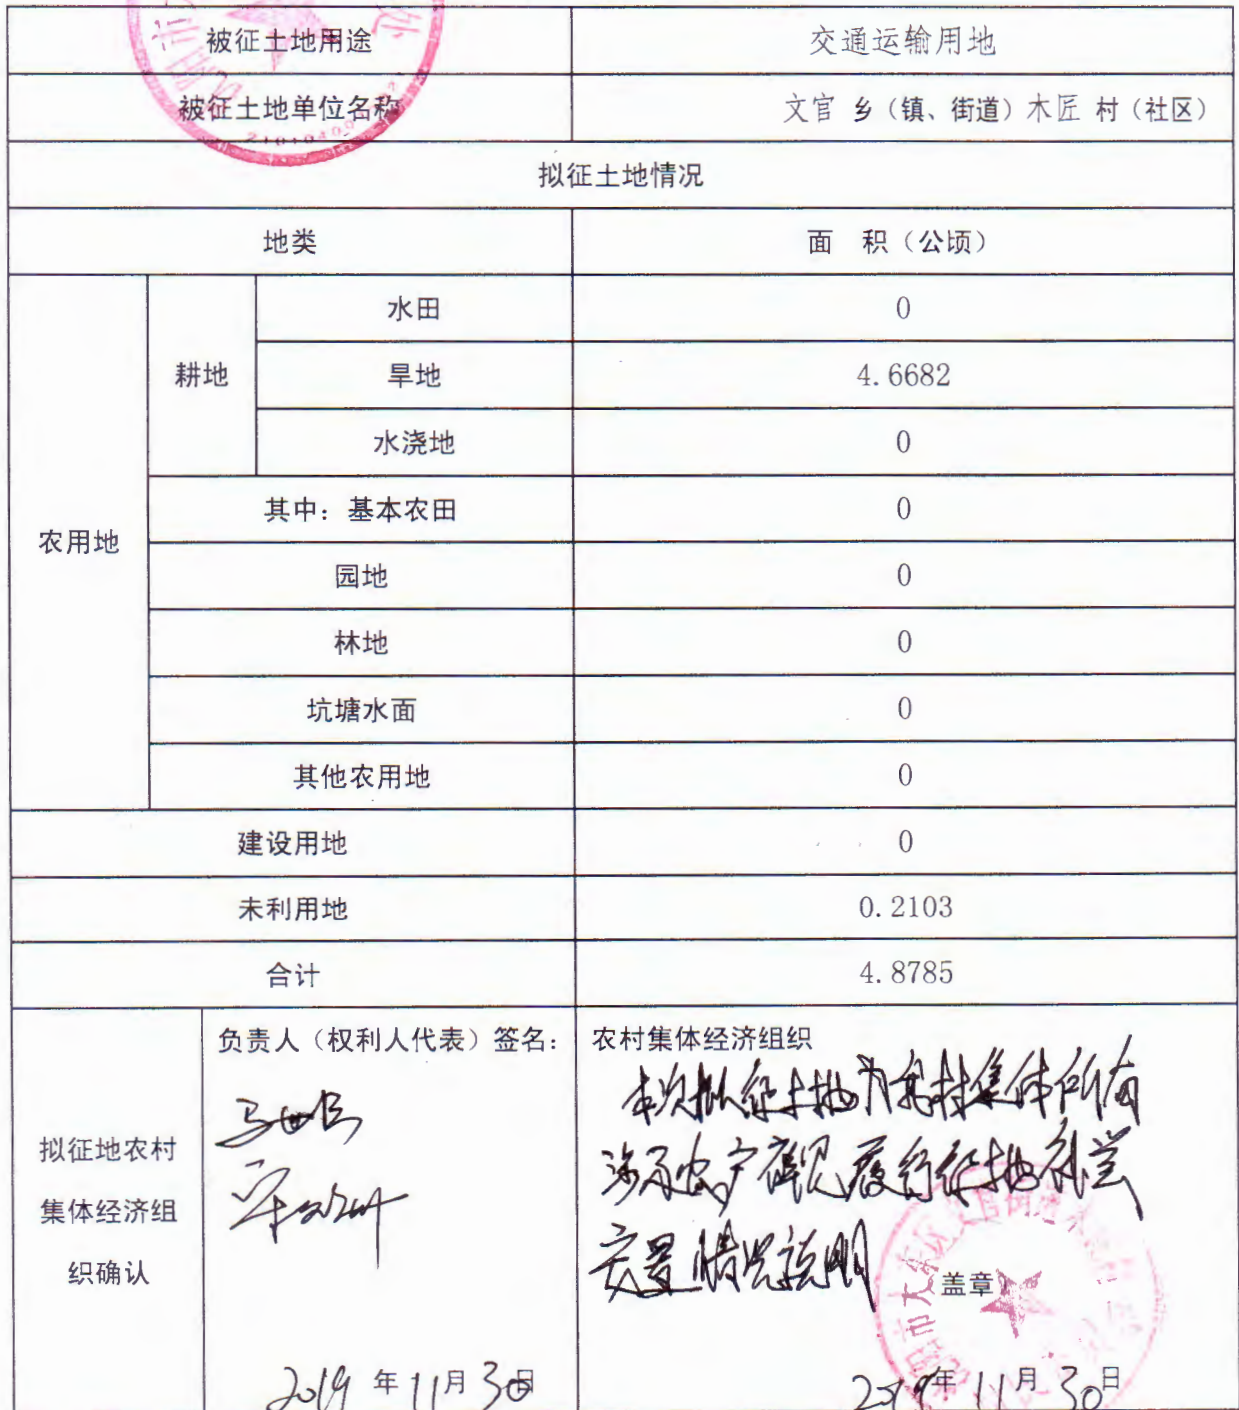 被征土地用途 交通运输用地
被征土地单位名称 文官 乡（镇、街道）木匠 村（社区）
21010400
拟征土地情况
地类 面 积（公顷）
农用地 耕地 水田 0
旱地 4.6682
水浇地 0
其中：基本农田 0
园地 0
林地 0
坑塘水面 0
其他农用地 0
建设用地 0
未利用地 0.2103
合计 4.8785
拟征地农村
集体经济组
织确认
负责人（权利人代表）签名：
2019 年 11 月 30 日
农村集体经济组织
本次拟征土地为我村集体所有
涉及农户详见履行征地补偿
安置情况说明
盖章
2019 年 11 月 30 日